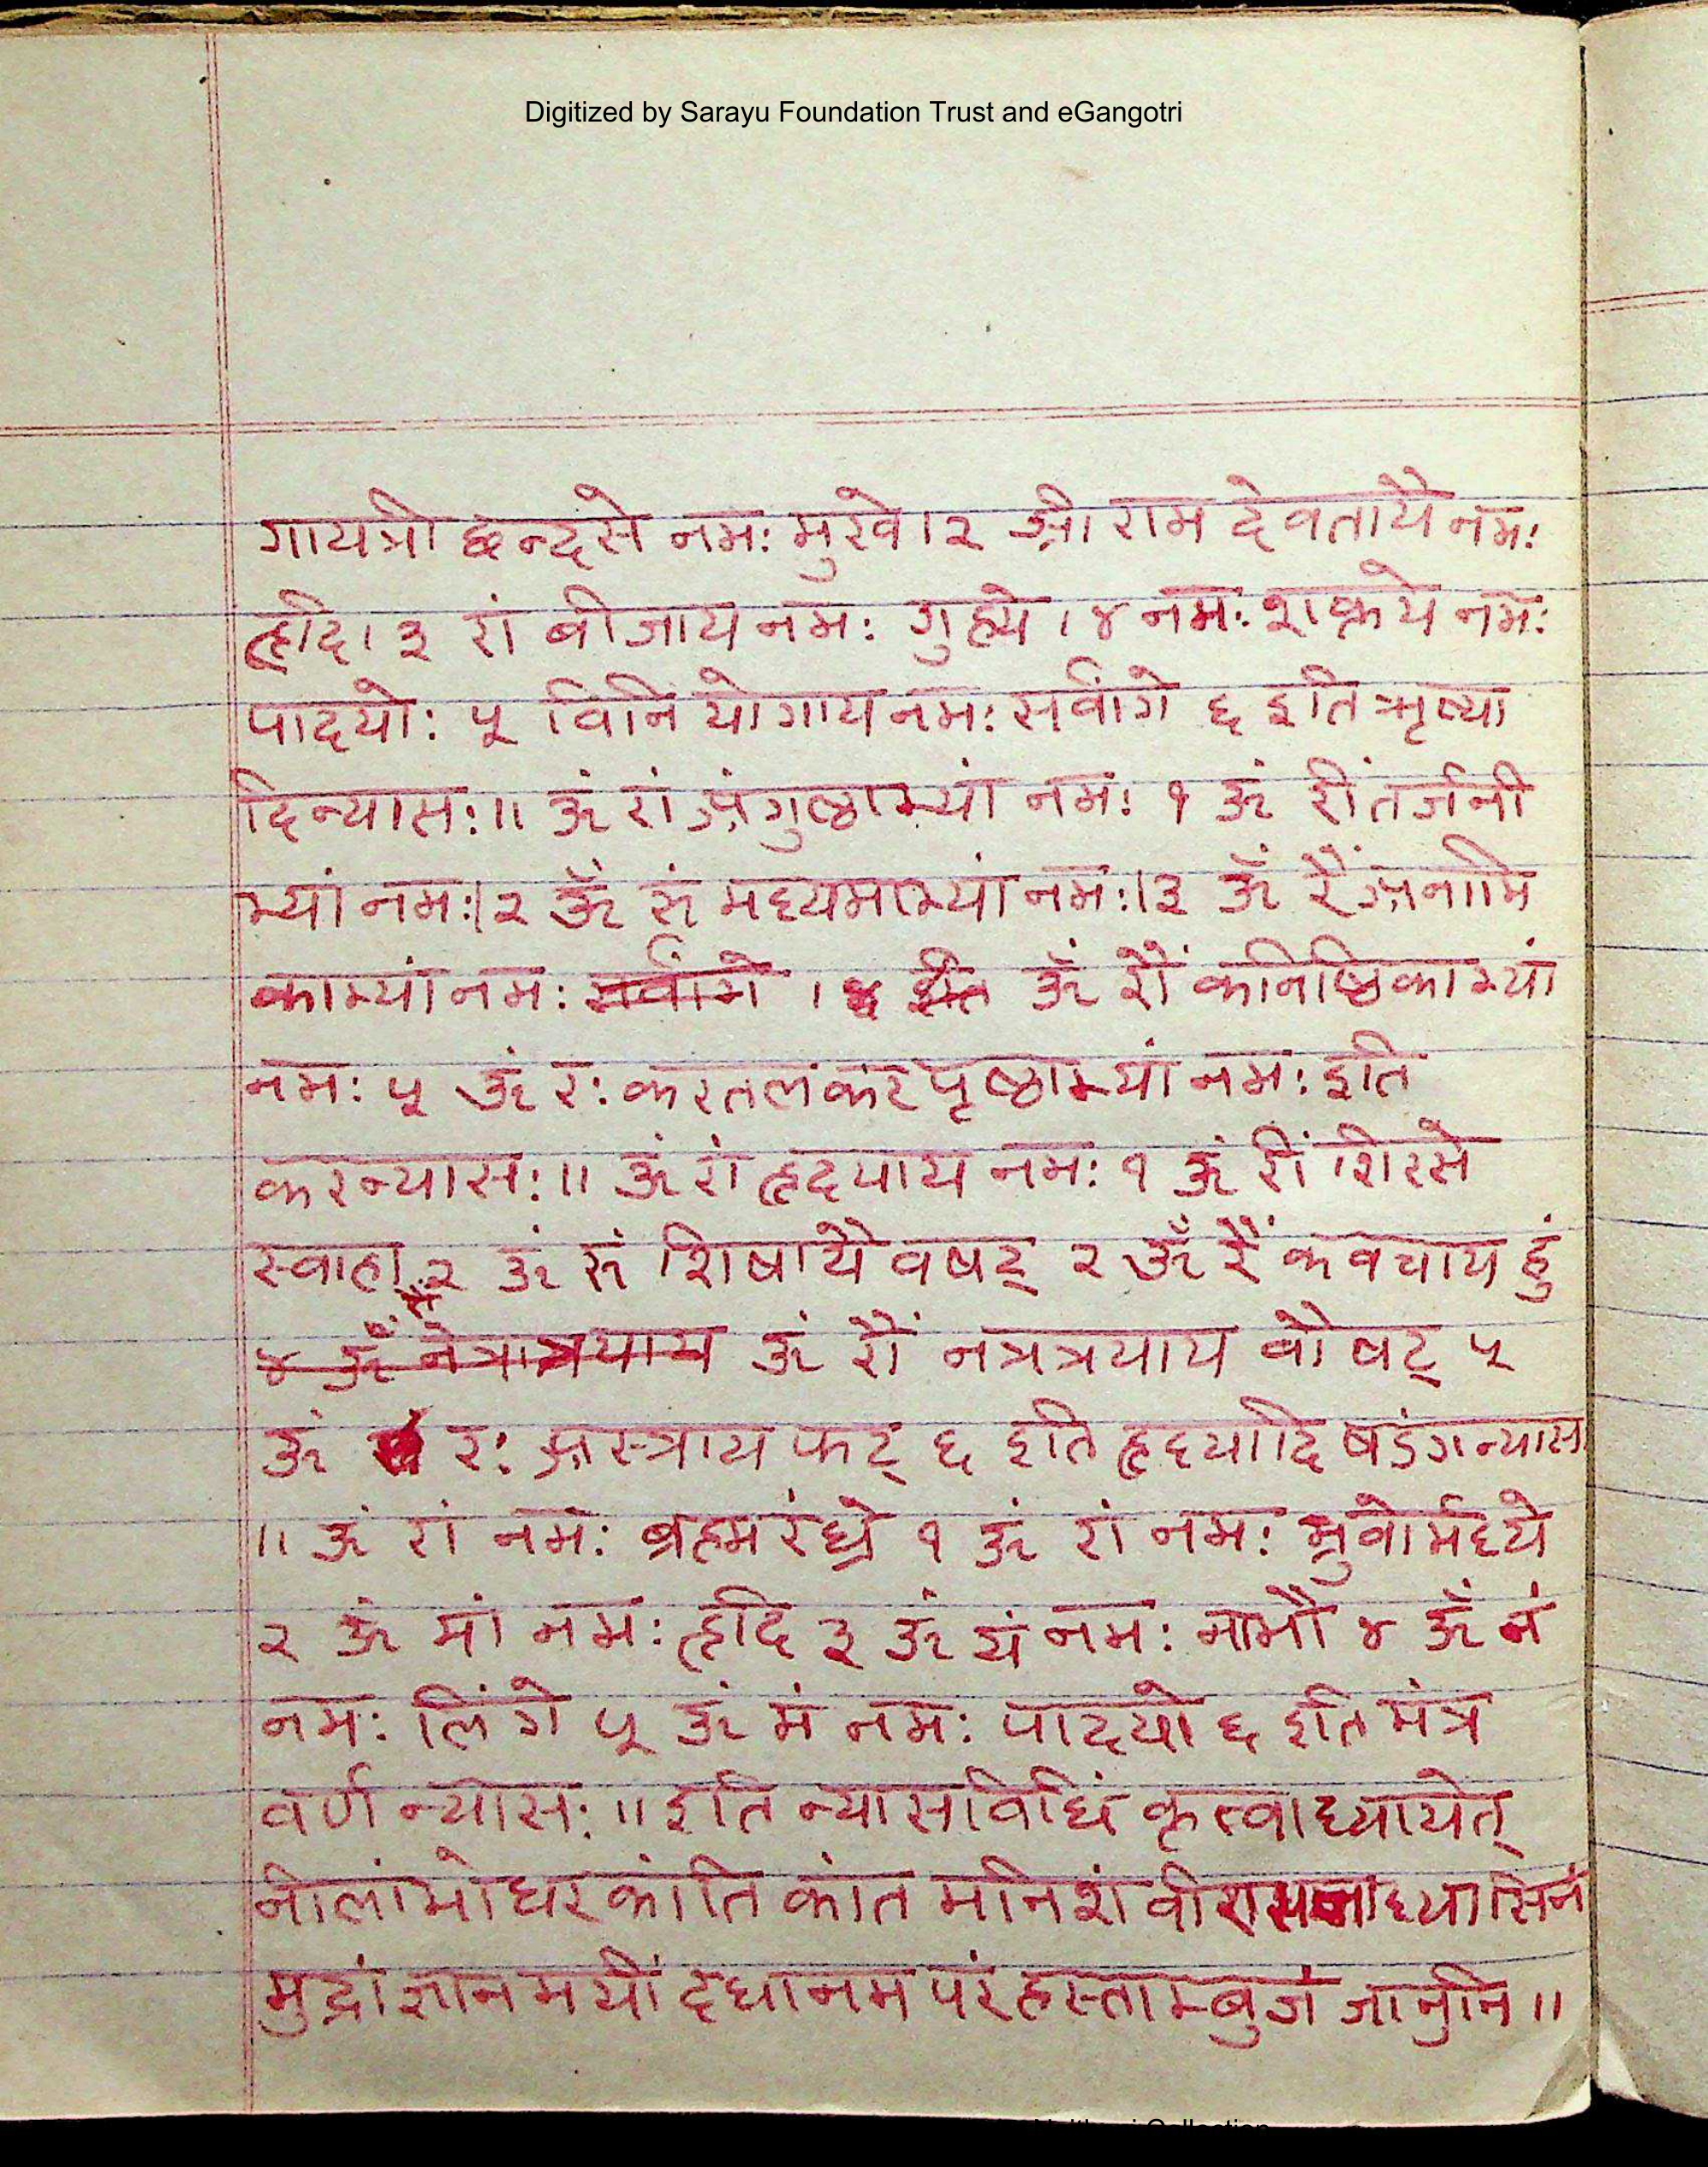 Digitized by Sarayu Foundation Trust and eGangotri
गायत्री छन्दसे नमः मुखे। २ श्री राम देवतायै नमः
हृदि। ३ रां बीजाय नमः गुह्ये। ४ नमः शक्तये नमः
पादयोः ५ विनियोगाय नमः सर्वांगे ६ इति ऋष्या
दिन्यासः॥ ॐ रां अंगुष्ठाभ्यां नमः १ ॐ रीं तर्जनी
भ्यां नमः।२ ॐ रूं मध्यमाभ्यां नमः।३ ॐ रैं अनामि
काभ्यां नमः सर्वांगे । ४ इति ॐ रौं कनिष्ठिकाभ्यां
नमः ५ ॐ रः करतलकरपृष्ठाभ्यां नमः इति
करन्यासः॥ ॐ रां हृदयाय नमः १ ॐ रीं शिरसे
स्वाहा २ ॐ रूं शिषायै वषट् २ ॐ रैं कवचाय हुं
४ ॐ नेत्रात्रयाय ॐ रौं नत्रत्रयाय वौषट् ५
ॐ रः अस्त्राय फट् ६ इति हृदयादि षडंगन्यास
॥ ॐ रां नमः ब्रह्मरंध्रे १ ॐ रां नमः भ्रुवोर्मध्ये
२ ॐ मां नमः हृदि ३ ॐ यं नमः नाभौ ४ ॐ नं
नमः लिंगे ५ ॐ मं नमः पादयो ६ इति मंत्र
वर्ण न्यासः॥ इति न्यासविधिं कृत्वा ध्यायेत्
नीलांभोधरकांति कांत मनिशं वीरासनाध्यासिनं
मुद्रां ज्ञानमयीं दधानमपरं हस्ताम्बुजं जानुनि॥